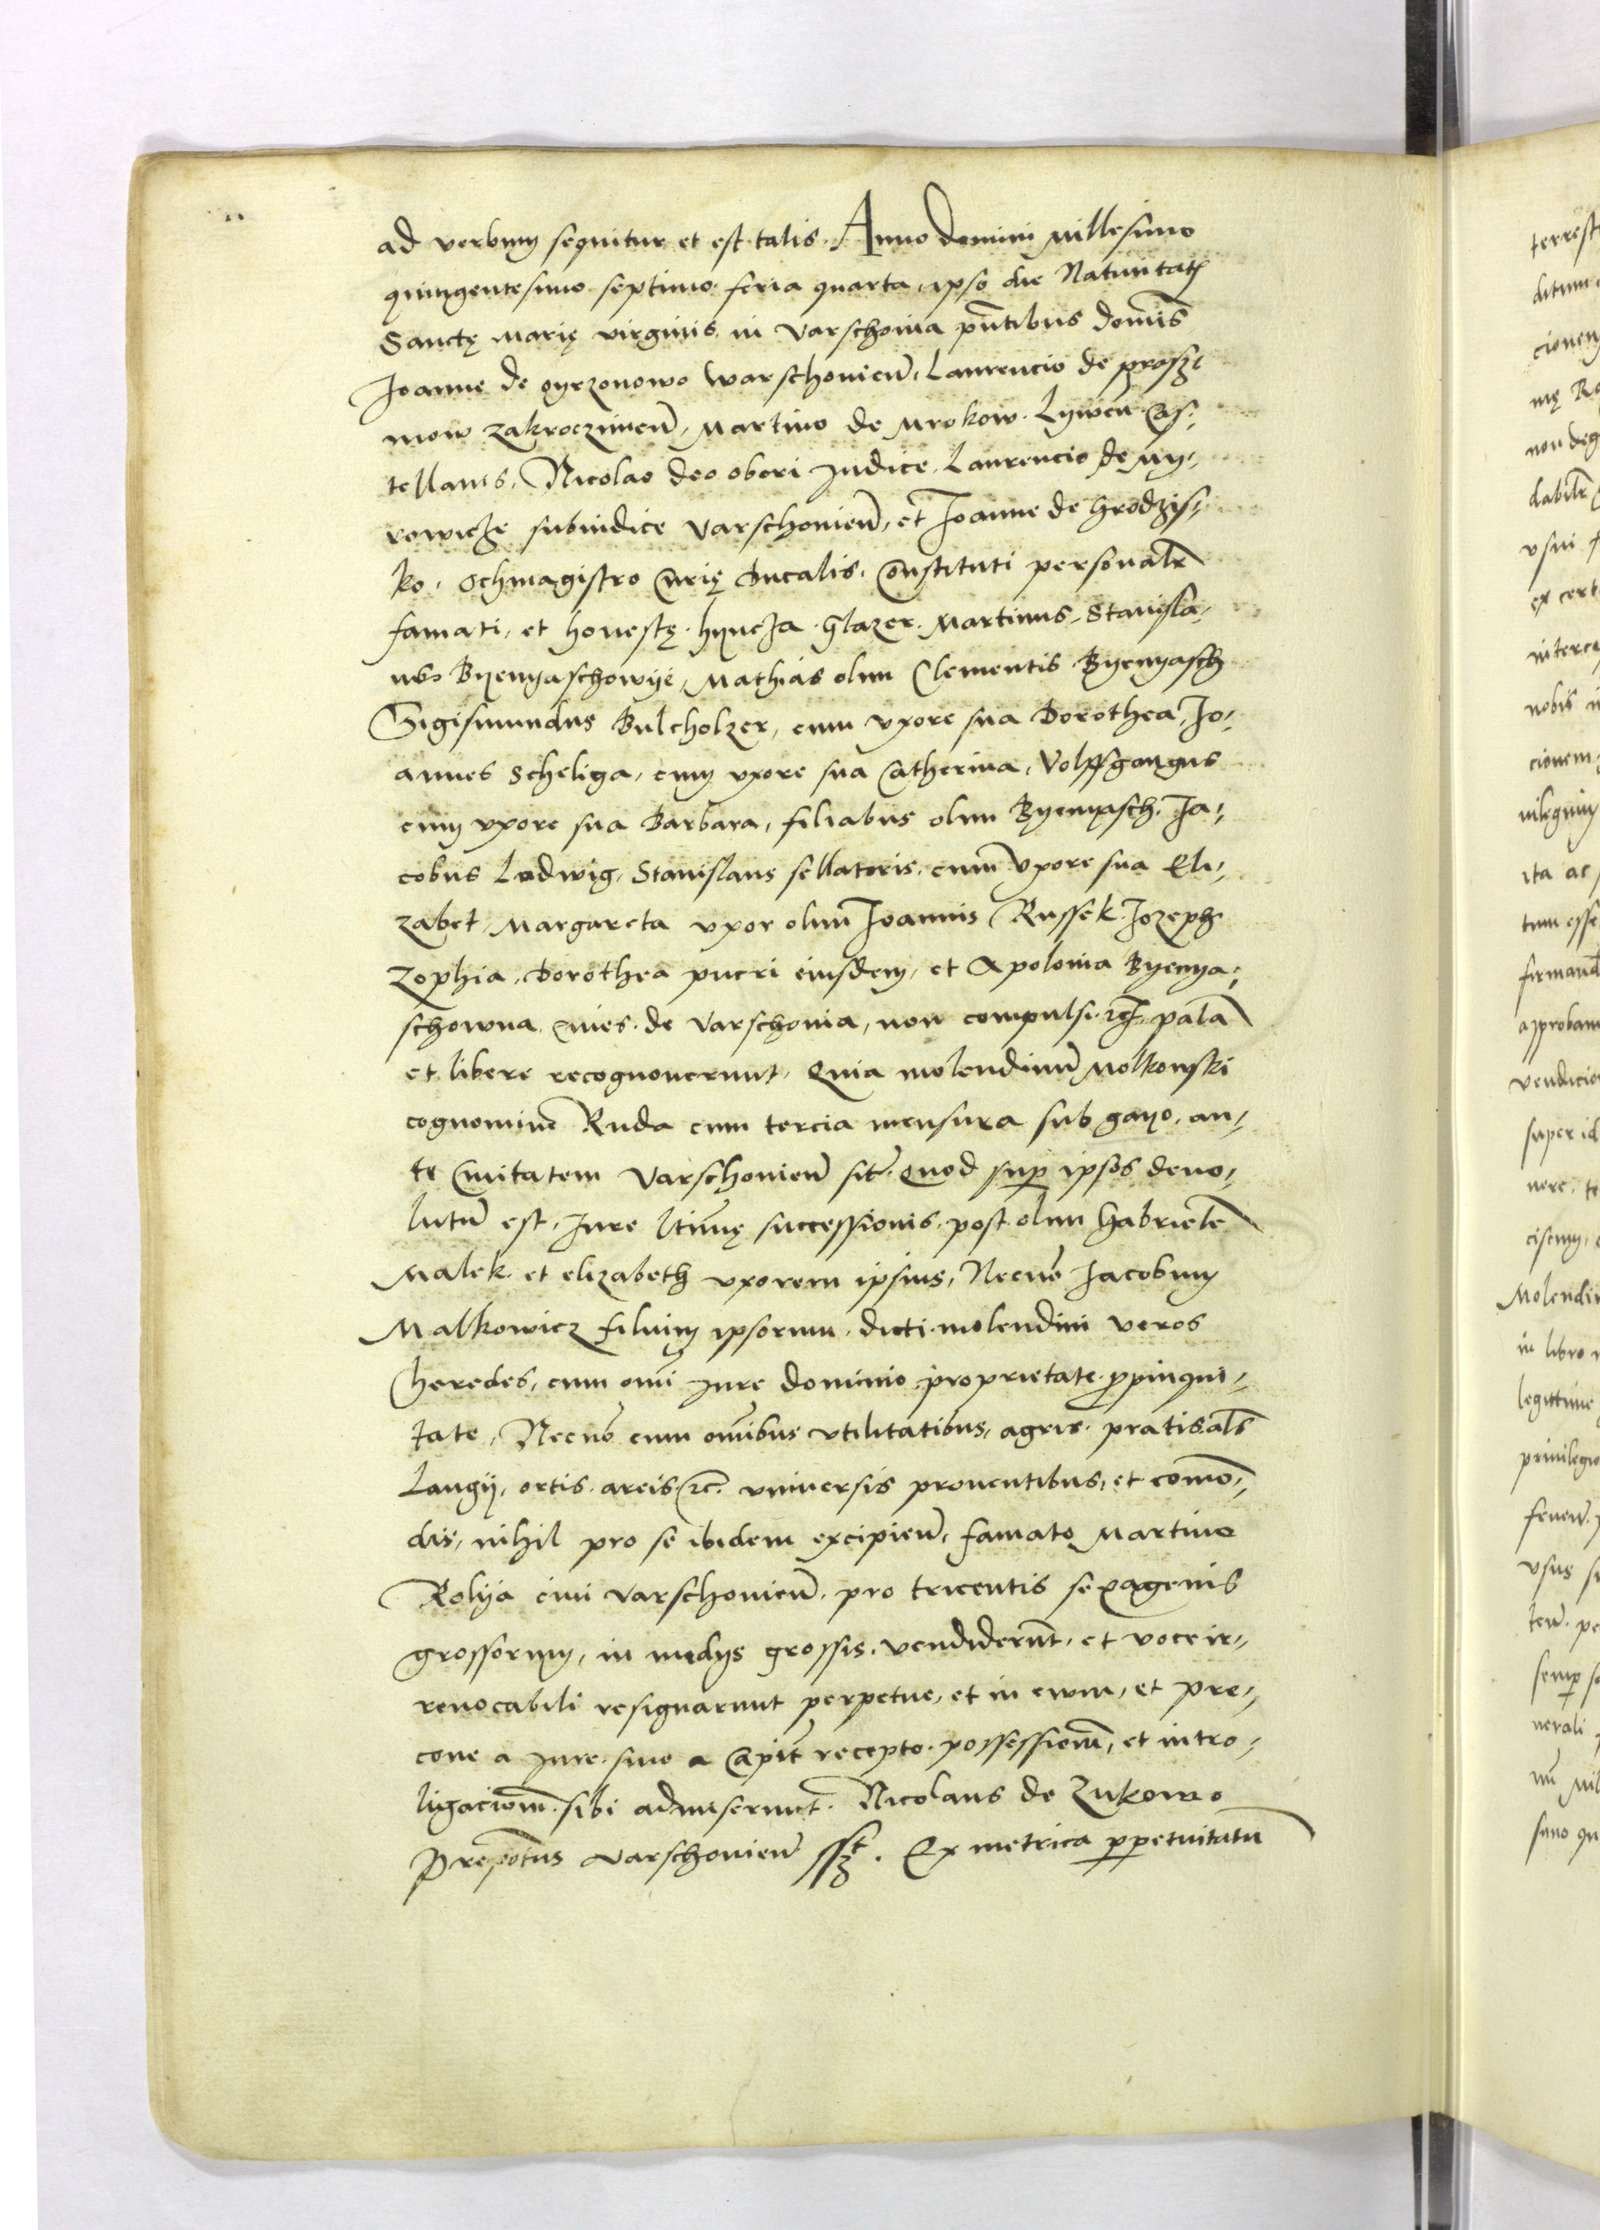 ad verbum sequitur et est talis. Anno domini Millesimo
quingentesimo septimo feria quarta, ipso die Natiuitatis
Sanctę Marię virginis in Varschouia pñtibus domis
Joanne de oyrzonowo Warschouieñ, Laurencio de prosz-
mow zakroczimeñ, Martino de Mrokow Lywen Cas-
tellanis, Nicolao deo obori Judice, Laurencio de My-
rowicze subiudice Varschouieñ, et Joanne de Grodzis-
ko, Ochmagistro Curię Ducalis. Constituti personalr
famati, et honestę. hyncza Glazer. Martinus, Stanisla-
us Byenyaschowye, Mathias olim Clementis Byenyasch
Sigismundus Bulcholzer, cum vxore sua Dorothea, Jo-
annes Scheliga, cum vxore sua Catherina, Volffgangus
cum vxore sua Barbara, filiabus olim Byenyasch, Ja-
cobus Lodwig, Stanislaus sellatoris, cum vxore sua Eli-
zabet, Margareta vxor olim Joannis Russek, Jozeph
Zophia, Dorothea pueri eiusdem, et Apolonia Byenya-
schowna ciues de Varschouia, non compulsi etc. palā
et libere recognouerunt, Quia molendinū Molkowski
cognomine Ruda cum tercia mensura sub gayo, an-
te Ciuitatem Varschouieñ sit. quod sup ipsos deuo-
lutū est, Jure ltimę successionis, post olim Gabrielē
Malek et elizabeth vxorem ipsius, Necnō Jacobum
Malkowicz filium ipsorum, dicti molendini veros
heredes, cum omi Jure dominio, proprietate, ppinqui-
tate, Necnō cum omibus vtilitatibus, agris, pratis als
Langy, ortis, areis etc. vniuersis prouentibus, et comō-
dis, nihil pro se ibidem excipieñ, famato Martino
Rolya ciui Varschouieñ pro tricentis sexagenis
grossorum, in medys grossis, vendiderūt, et voce ir-
reuocabili resignarunt perpetue, et in ewm, et pre-
cone a Jure siue a Capit recepto, possessionē, et intro-
ligacionē sibi admiserunt. Nicolaus de Zukowo
Prepotus Varschouieñ sst. Ex metrica ppetuitatū